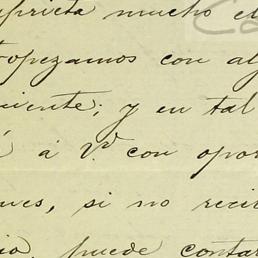 aprieta mucho el
tropezamos con al
niente; y en tal
á V. con opor
nes, si no reci
io, puede contar